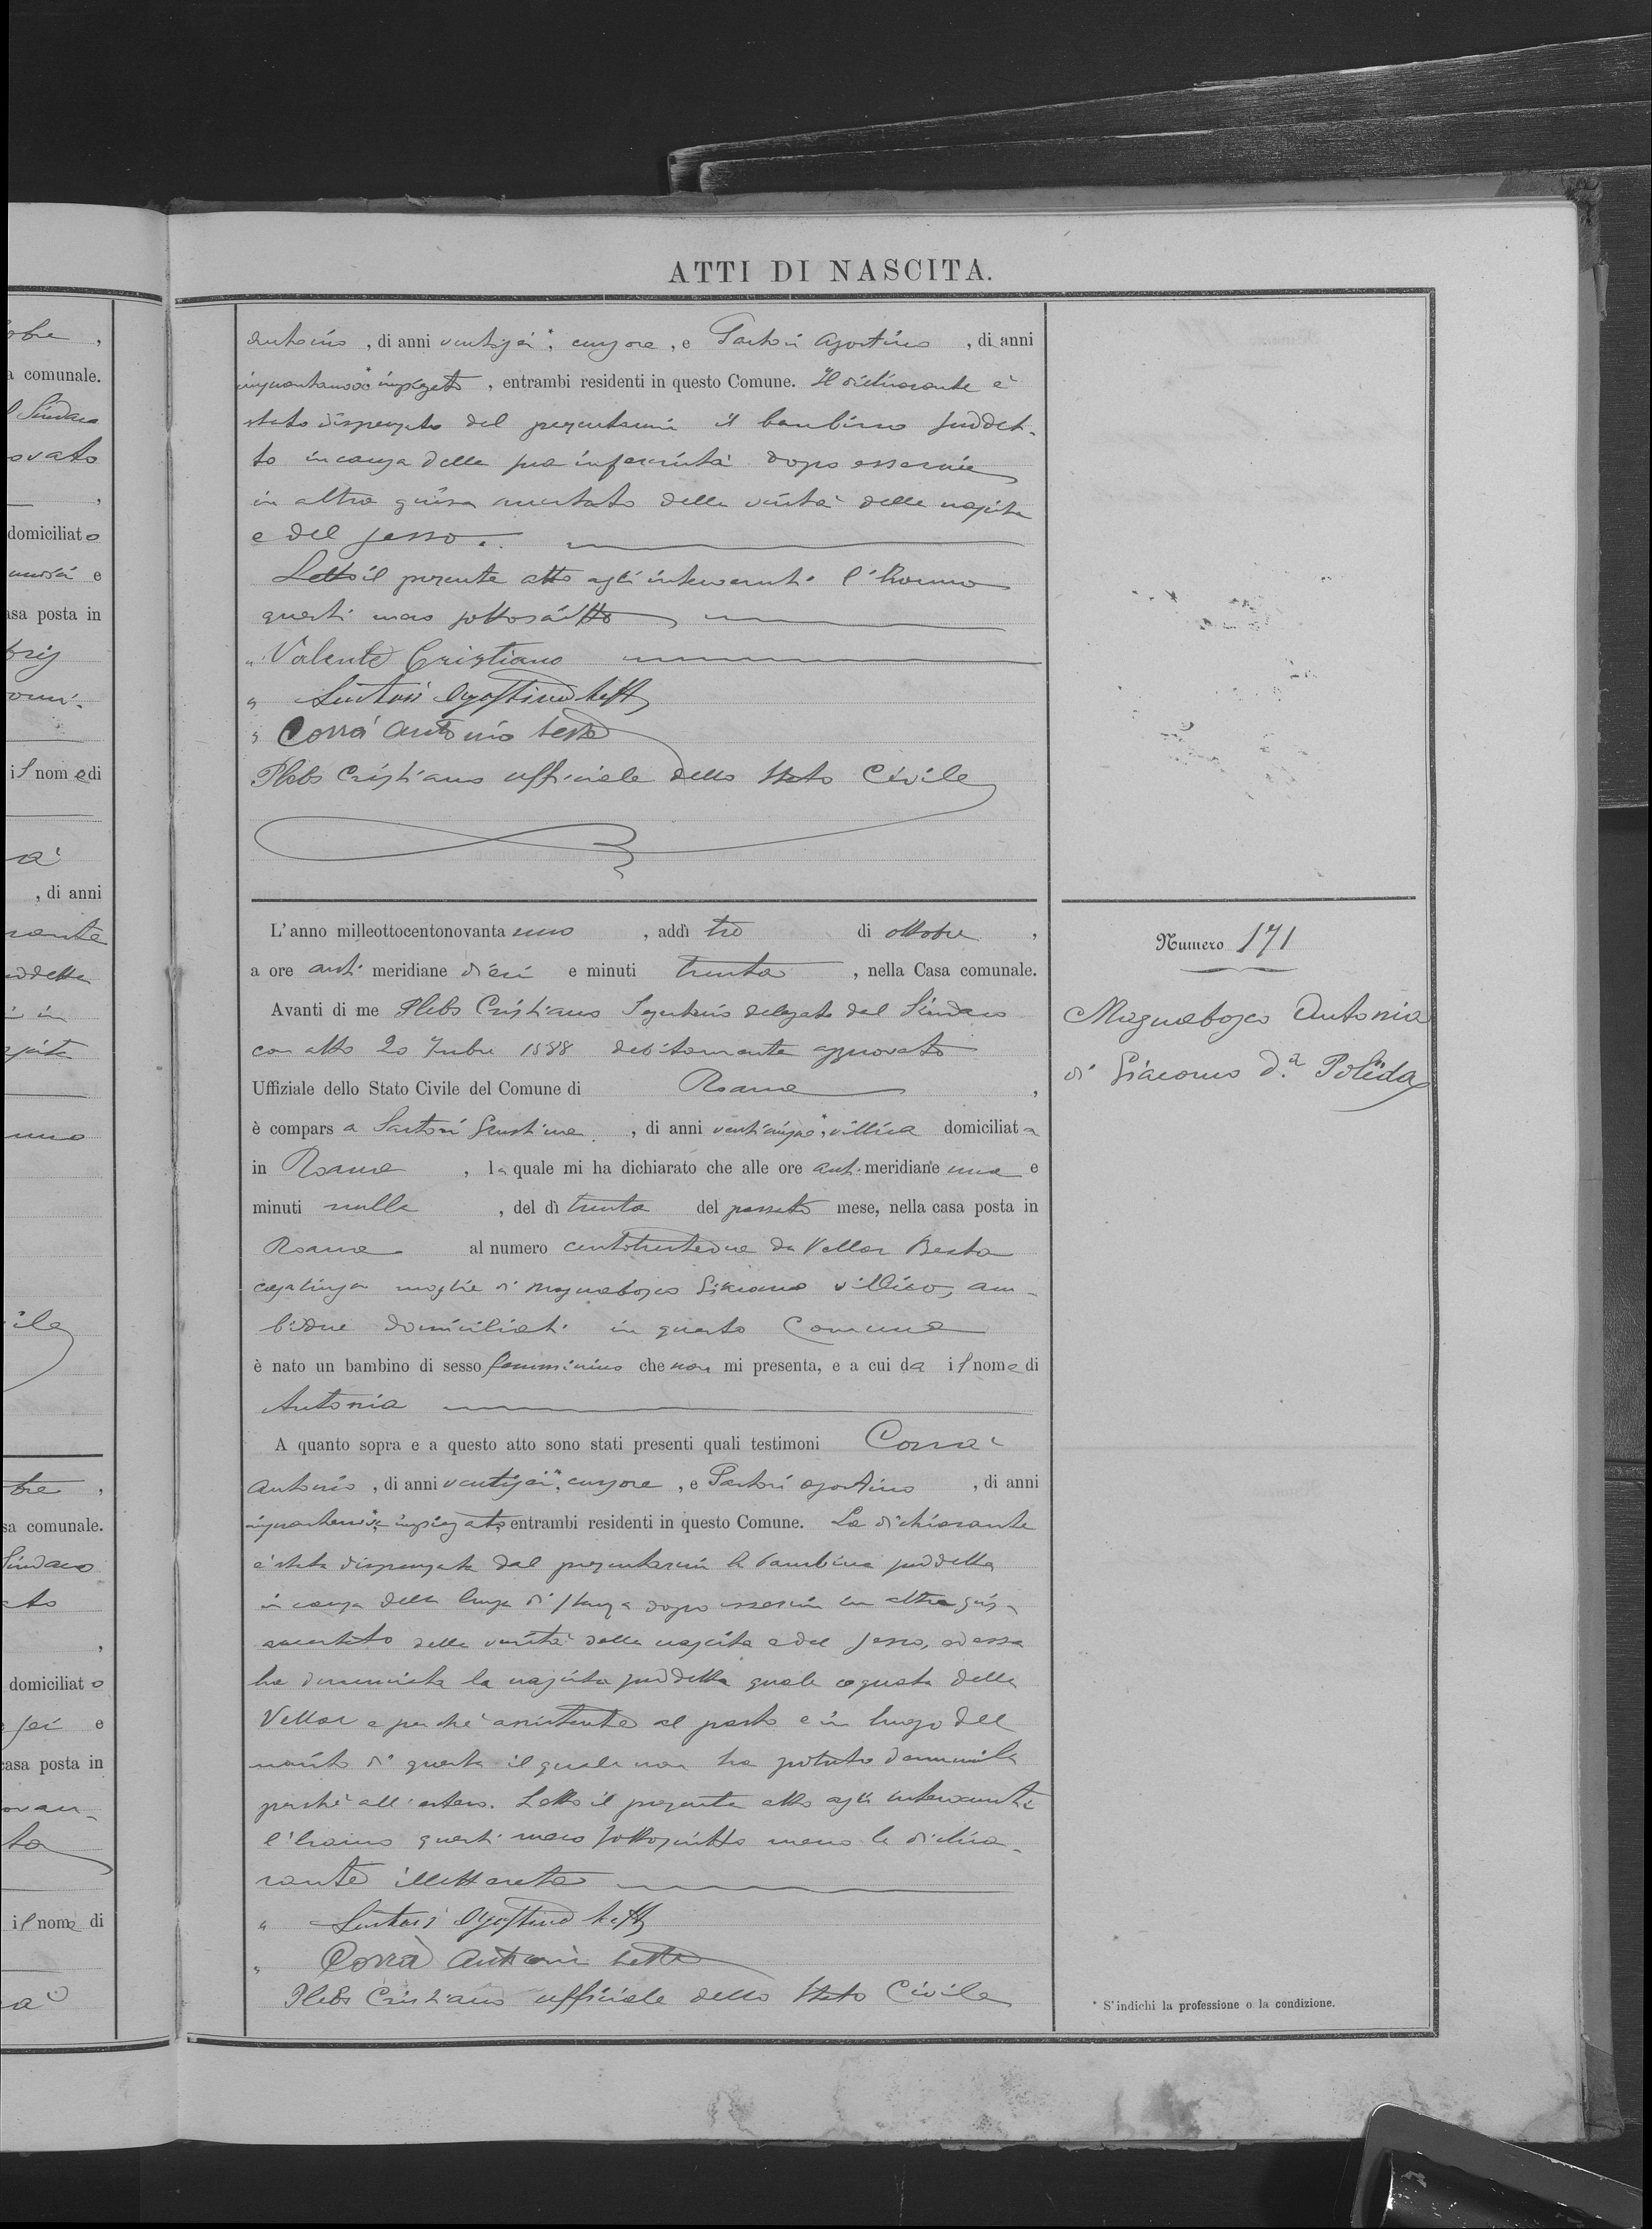 ATTI DI NASCITA.
Antonio, di anni ventisei, cursore, e Sartori Agostino, di anni
cinquantanove impiegato, entrambi residenti in questo Comune. Il dichiarante è
stato dispensato dal presentarmi il bambino suddet-
to in causa della sua infermità dopo essermi
in altra guisa accertato della verità della nascita
e del sesso.
Letto il presente atto agli intervenuti l'hanno
questi meco sottoscritto
" Valente Cristiano
" Sartori Agostino test
" Corrà Antonio teste
Plebs Cristiano ufficiale dello Stato Civile
L'anno milleottocentonovanta uno, addì tre di ottobre,
a ore anti meridiane dieci e minuti trenta, nella Casa comunale.
Avanti di me Plebs Cristiano Segretario delegato dal Sindaco
con atto 20 7mbre 1888 debitamente approvato
Uffiziale dello Stato Civile del Comune di Roana,
è compars a Sartori Giustina, di anni venticinque, villica domiciliat a
in Roana, la quale mi ha dichiarato che alle ore anti meridiane una e
minuti nulla, del dì trenta del passato mese, nella casa posta in
Roana al numero centotrentadue da Vellar Berta
casalinga moglie di Magnabosco Giacomo villico, am-
bidue domiciliati in questo Comune
è nato un bambino di sesso femminino che non mi presenta, e a cui da il nome di
Antonia
A quanto sopra e a questo atto sono stati presenti quali testimoni Corrà
Antonio, di anni ventisei, cursore, e Sartori Agostino, di anni
cinquantanove, impiegato, entrambi residenti in questo Comune. La dichiarante
è stata dispensata dal presentarmi la bambina suddetta
in causa della lunga distanza dopo essermi in altra guisa
accertato della verità della nascita e del sesso, ed essa
ha denunciata la nascita suddetta quale cognata della
Vellar e perchè assistente al parto e in luogo del
marito di questa il quale non ha potuto denunciarla
perchè all'estero. Letto il presente atto agli intervenuti
l'hanno questi meco sottoscritto meno la dichia-
rante illetterata
" Sartori Agostino test
" Corrà Antonio teste
Plebs Cristiano ufficiale dello Stato Civile
Numero 171
Magnabosco Antonia
di Giacomo d.ª Polëda
* S'indichi la professione o la condizione.
a comunale.
l Sindaco
ovato
domiciliato
asa posta in
il nome di
, di anni
sa comunale.
Sindaco
domiciliato
sei e
casa posta in
il nome di